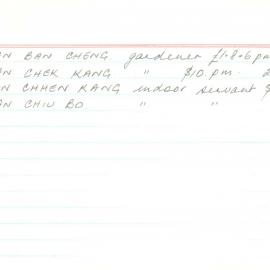 N BAN CHENG gardener £1-8-6 pm
N CHEK KANG " $10. p.m. 2
N CHHEN KANG indoor servant $
N CHIU BO " "